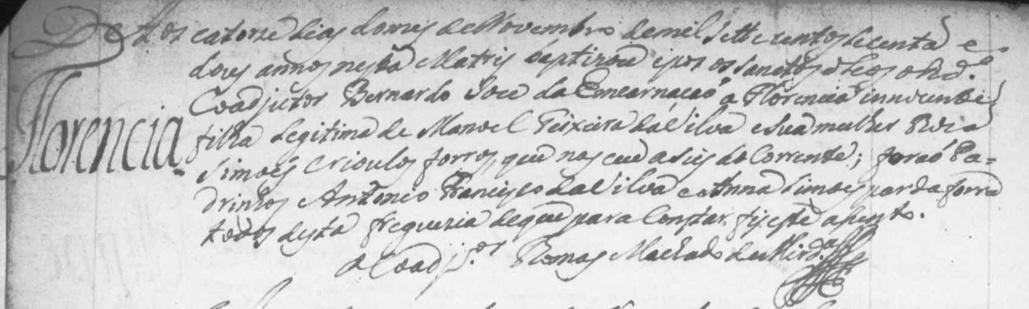 Aos catorse dias do mes de Novembro de mil Sette centos secenta e
dous annos nesta Matris baptizou e pos os Sanctos oleos o Rd.º
Coadjutor Bernardo Jose da Encarnação a Florencia innocente
Florencia
filha legitima de Manoel Teixeira da Silva e sua mulher Roza
Simoes Crioulos forros, que nasceu a seis do Corrente; foraõ Pa-
drinhos Antonio Francisco da Silva e Anna Simoes parda forra
todos desta freguezia de que para Constar fis este asento.
o Coadj.or Thomas Machado de Mird.ª